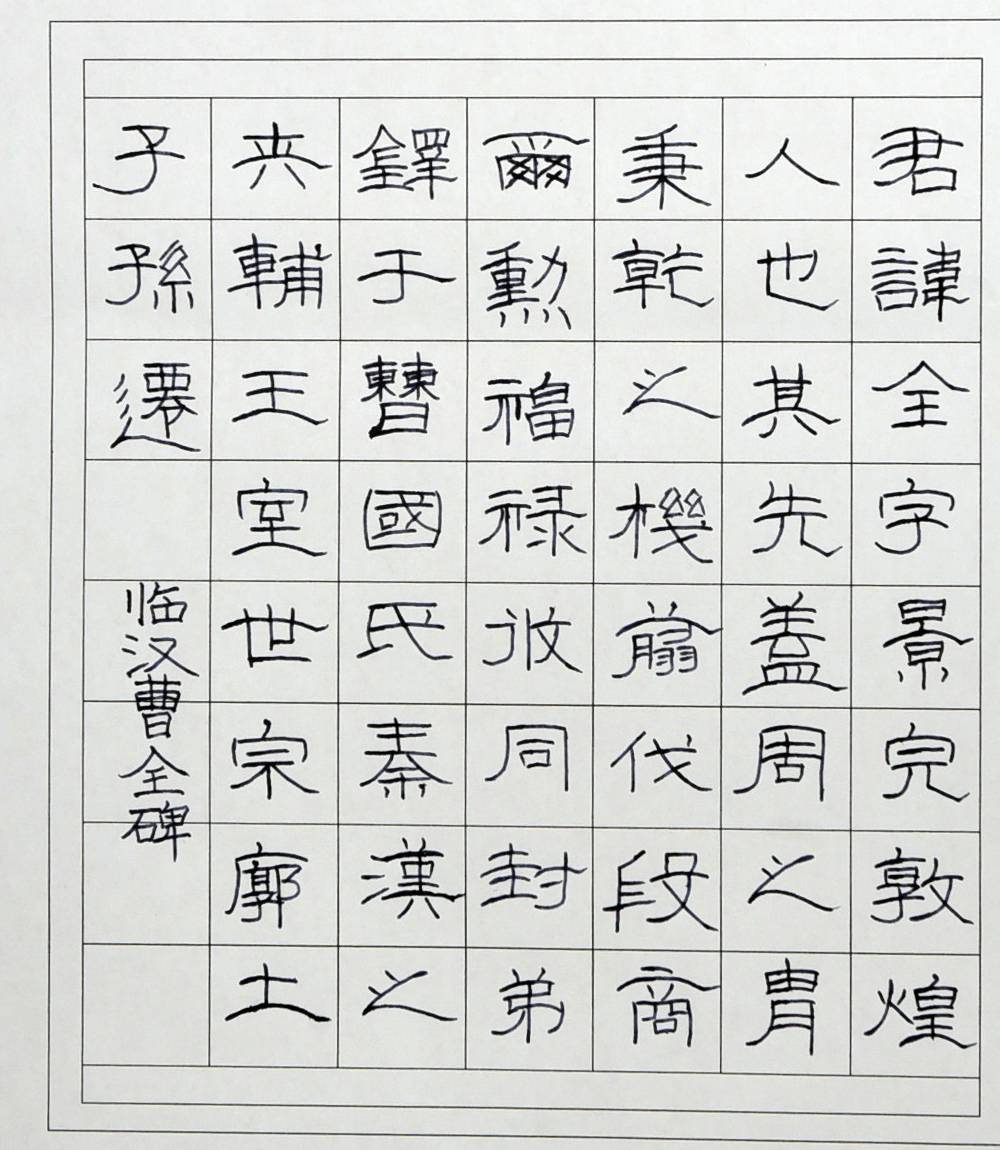 君諱全字景完敦煌
人也其先蓋周之胄
秉乾之機翦伐殷商
爾勲福禄攸同封弟
鐸于曹國氏秦漢之
夾輔王室世宗廓土
子孫遷
临汉曹全碑